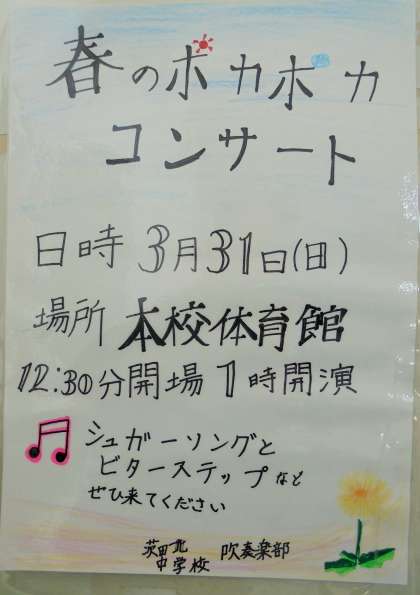 春のポカポカ
コンサート
日時 3月31日(日)
場所 本校体育館
12:30分開場 1時開演
シュガーソングと
ビターステップなど
ぜひ来てください
茨田北
中学校 吹奏楽部